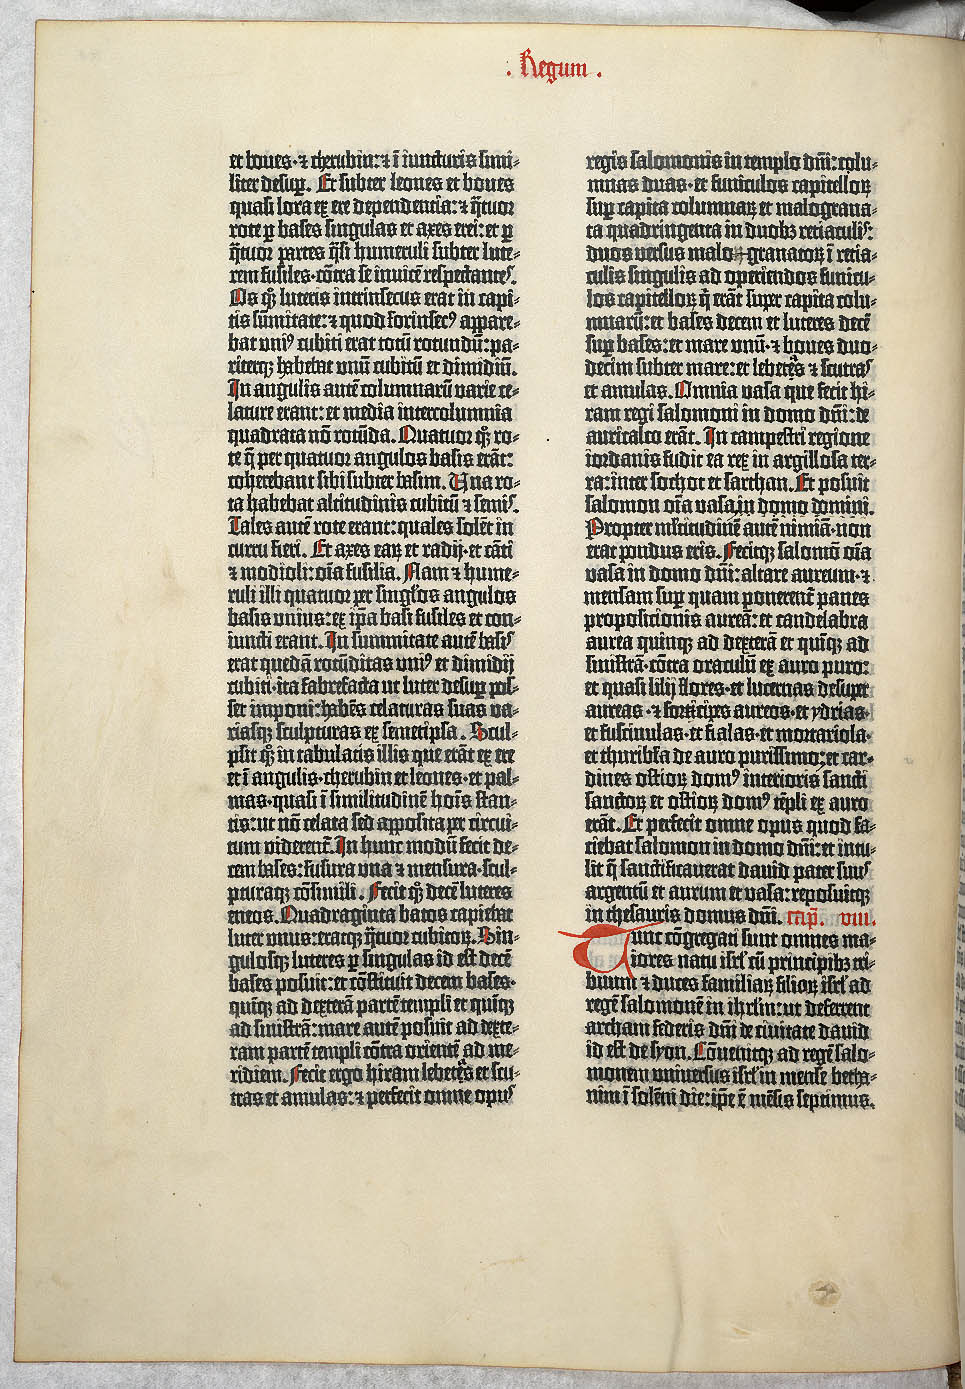 . Regum .
et boues·⁊ cherubin:⁊ ī iuncturis simi-
liter desuꝑ. Et subter leones et boues
quasi lora ex ere dependentia:⁊ q̄tuor
rote ꝑ bases singulas et axes erei:et ꝑ
q̄tuor partes q̄si humeruli subter lute-
rem fusiles·cōtra se inuicē respectantes.
Os qꝫ luteris intrinsecus erat in capi-
tis sūmitate:⁊ quod forinsecꝰ appare-
bat vniꝰ cubiti erat totū rotundū:pa-
riterqꝫ habebat vnū cubitū et dimidiū.
In angulis autē columnarū varie ce-
lature erant:et media intercolumnia
quadrata nō rotūda. Quatuor qꝫ ro-
te q̄ per quatuor angulos basis erāt:
coherebant sibi subter basim. Una ro-
ta habebat altitudinis cubitū ⁊ semis.
Tales autē rote erant:quales solēt in
curru fieri. Et axes eaꝝ et radij·et cāti
⁊ modioli:oīa fusilia. Nam ⁊ hume-
ruli illi quatuor per singlōs angulos
basis vnius:ex ip̄a basi fusiles et con-
iuncti erant. In summitate autē basis
erat quedā rotūditas vniꝰ et dimidij
cubiti·ita fabrefacta ut luter desuꝑ pos-
set imponi:habēs celaturas suas va-
riasqꝫ sculpturas ex semetipsa. Scul-
psit qꝫ in tabulatis illis que erāt ex ere
et ī angulis·cherubin et leones·et pal-
mas·quasi ī similitudinē hoīs stan-
tis:ut nō celata sed apposita per circui-
tum viderent̄. In hunc modū fecit de-
cem bases:fusura vna ⁊ mensura·scul-
pturaqꝫ cōsimili. Fecit qꝫ decē luteres
eneos. Quadraginta batos capiebat
luter vnus:eratqꝫ q̄tuor cubitoꝝ. Sin-
gulosqꝫ luteres ꝑ singulas id est decē
bases posuit:et cōstituit decem bases·
quīqꝫ ad dexterā partē templi et quīqꝫ
ad sinistrā:mare autē posuit ad dexte-
ram partē templi cōtra orientē ad me-
ridiem. Fecit ergo hiram lebetes et scu-
tras et amulas:⁊ perfecit omne opus
regis salomonis in templo dn̄i:colu-
mnas duas·et funiculos capitelloꝝ
suꝑ capita columnaꝝ et malograna-
ta quadringenta in duobꝫ retiaculis:
duos versus malo-granatoꝝ ī retia-
culis singulis ad operiendos funicu-
los capitelloꝝ q̄ erāt super capita colu-
mnarū:et bases decem et luteres decē
suꝑ bases:et mare vnū·⁊ boues duo-
decim subter mare:et lebetes ⁊ scutras
et amulas. Omnia vasa que fecit hi-
ram regi salomoni in domo dn̄i:de
auricalco erāt. In campestri regione
iordanis fudit ea rex in argillosa ter-
ra:inter sochot et sarthan. Et posuit
salomon oīa vasa in domo domini.
Propter mltitudinē autē nimiā·non
erat pondus eris. Fecitqꝫ salomō oīa
vasa in domo dn̄i:altare aureum·⁊
mensam suꝑ quam ponerent̄ panes
proposicionis aureā:et candelabra
aurea quinqꝫ ad dexterā et quīqꝫ ad
sinistrā·cōtra oraculū ex auro puro:
et quasi lilij flores·et lucernas desuper
aureas·⁊ forcipes aureos·et ydrias·
et fuscinulas·et fialas·et mortariola·
et thuribla de auro purissimo:et car-
dines ostioꝝ domꝰ interioris sancti
sanctoꝝ et ostioꝝ domꝰ tēpli ex auro
erāt. Et perfecit omne opus quod fa-
ciebat salomon in domo dn̄i:et intu-
lit q̄ sanctificauerat dauid pater suus
argentū et aurum et vasa:reposuitqꝫ
in thesauris domus dn̄i. Cap̄. viii.
Tunc cōgregati sunt omnes ma-
iores natu isrl̄ cū principibꝫ tri-
buum ⁊ duces familiaꝝ filioꝝ isrl̄ ad
regē salomonē in ihrlm:ut deferrent
archam federis dn̄i de ciuitate dauid
id est de syon. Cōuenitqꝫ ad regē salo-
monem vniuersus isrl̄ in mense betha-
nim ī solēni die:ip̄e ē mēsis septimus.